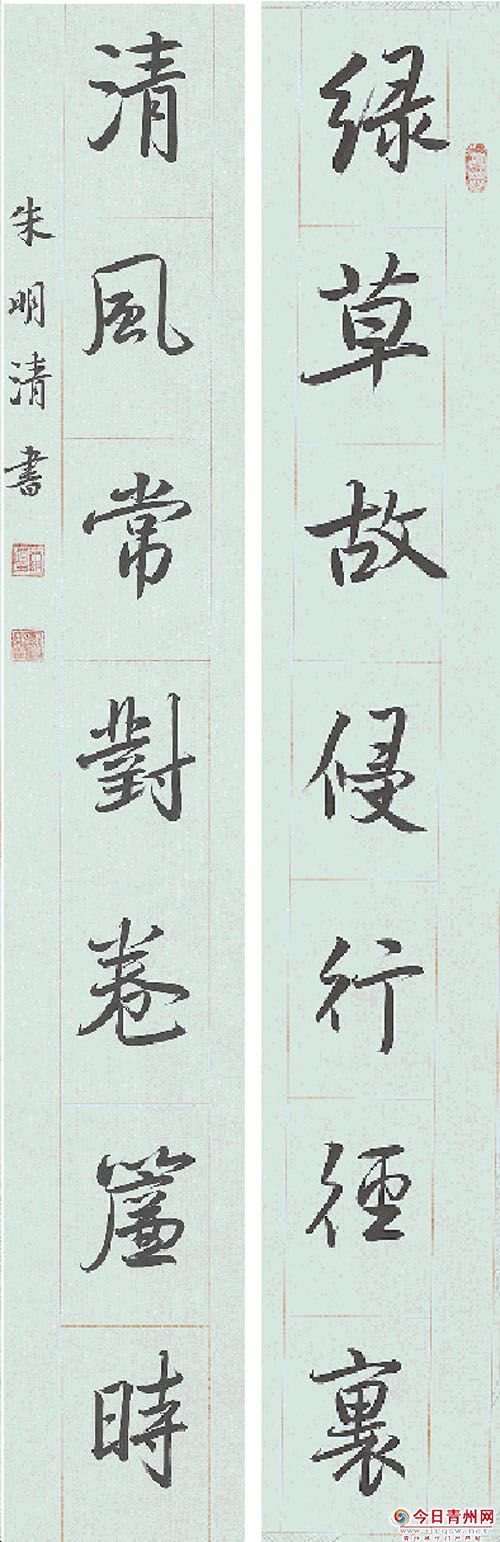 绿草故侵行径裏
清風常對卷簾時
朱明清書
今日青州网